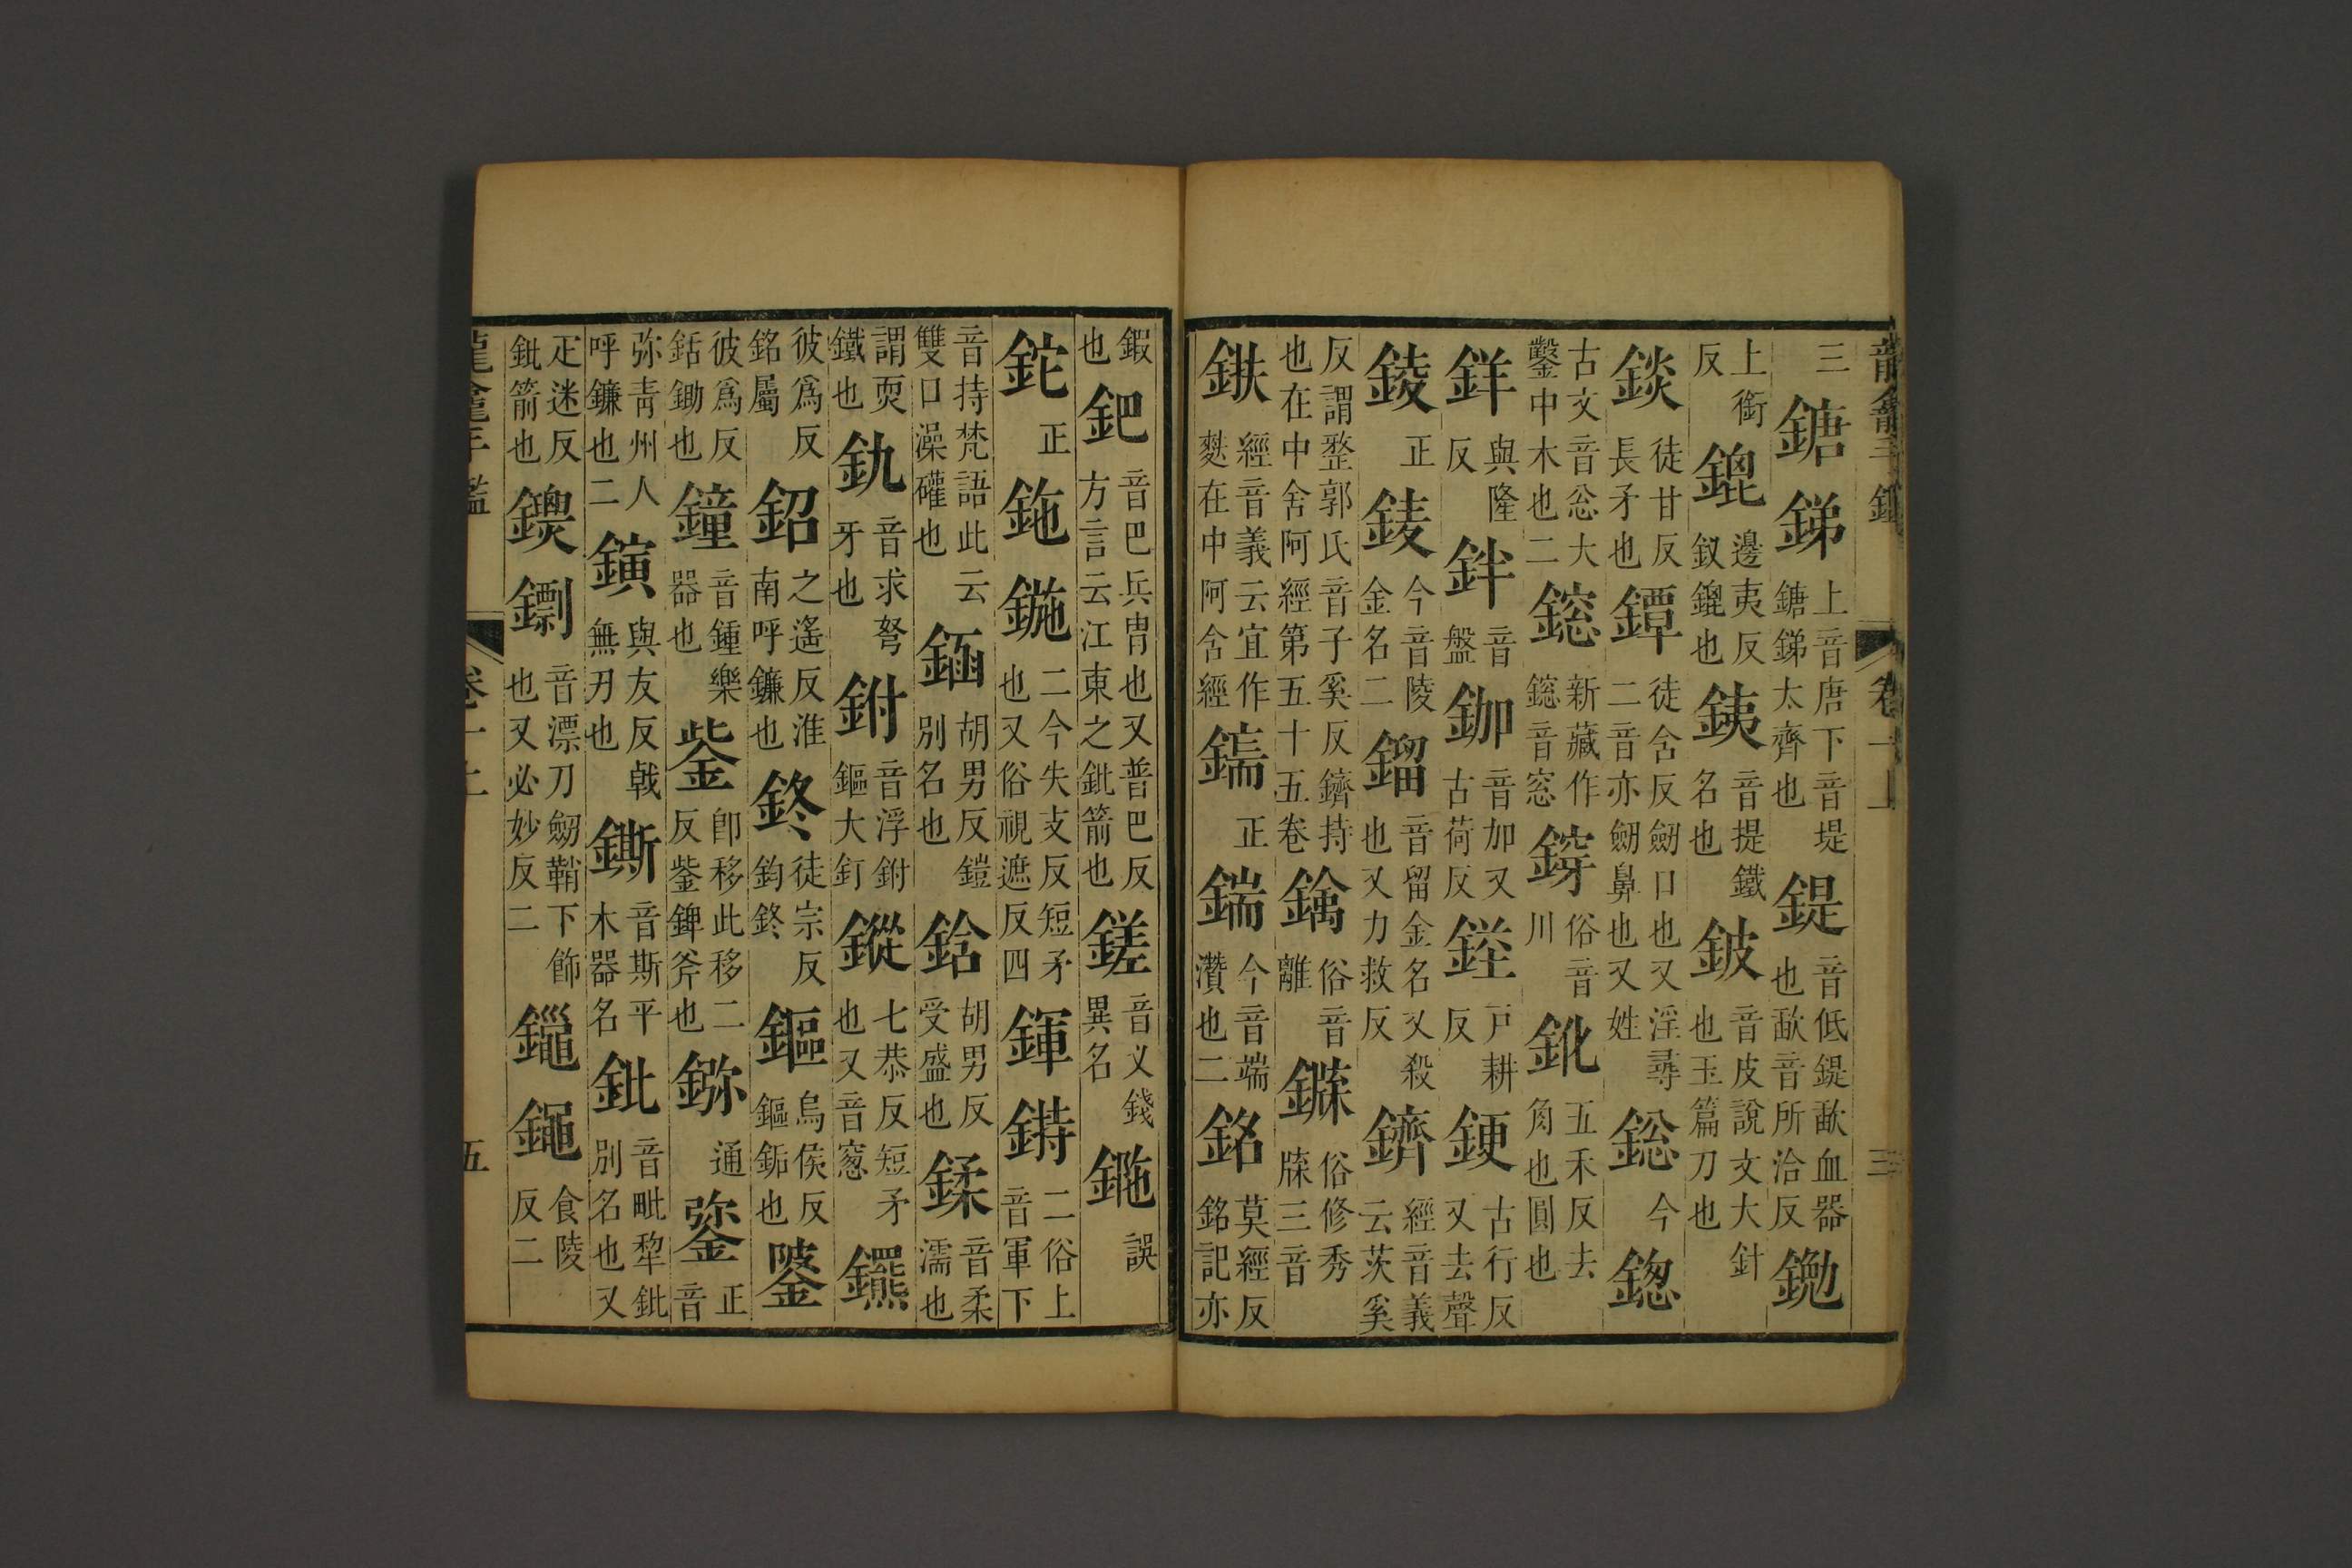 三鎕銻上音唐下音堤鎕銻太齊也鍉音低鍉歃血器也歃音所洽反鋤
上銜反錕邊夷反釵錕也銕音提鐵名也鈹音皮說文大針也玉篇刀也
錟徒甘反長矛也鐔徒含反劒口也又淫尋二音亦劒鼻也又姓鍯今鍃
古文音忩大鑿中木也二鎴新藏作鎴音窓俗音川鈋五禾反去角也圓也
鉡與隆反鉡音盤鉫音加又古荷反鋞戸耕反鋉古行反又去聲
錂正錂今音陵金名二鎦音留金名又殺也又力救反鑇經音義云茨奚
反謂整郭氏音子奚反鑇持也在中舍阿經第五十五卷鏋俗音離鏼俗修秀牒三音
鉄經音義云宜作麩在中阿含經鍴正鍴今音端瓚也二銘莫經反銘記亦
鍜也鈀音巴兵冑也又普巴反方言云江東之鈚箭也鎈音义錢異名鍦誤
鉈正鉇鍦二今失支反短矛也又俗視遮反四鍕鋳二俗上音軍下
音持梵語此云雙口澡礶也䤴胡男反鎧別名也鋡胡男反受盛也鍒音柔濡也
謂耎鐵也釚音求弩牙也鉜音浮鉜鏂大釘鏦七恭反短矛也又音窓鑂
彼爲反銘屬鉊之遙反淮南呼鐮也鉖徒宗反鈞鉖鏂烏侯反鏂鉚也鋻
彼爲反銛鋤也鐘音鍾樂器也鈭卽移此移二反鈭錍斧也鉨通鋻正音
弥靑州人呼鐮也二鐄與友反戟無刃也鐁音斯平木器名鈚音毗犂鈚別名也又
疋迷反鈚箭也鍥鏢音漂刀劒鞘下飾也又必妙反二鑞鐹食陵反二
龍龕手鑑
卷一上
五
三